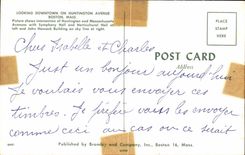 LOOKING DOWNTOWN ON HUNTINGTON AVENUE
BOSTON, MASS.
Picture shows intersection of Huntington and Massachusetts
Avenues with Symphony Hall and Horticultural Hall at
left and John Hancock Building on sky line at right.
PLACE
STAMP
HERE
POST CARD
Address
Cher Isabelle et Charles
Just un bonjour aujourd'hui
Je voulais vous envoyer ces
timbres. Je préfère vous les envoyer
comme ceci au cas ou ce serait
Published by Bromley and Company, Inc., Boston 16, Mass.